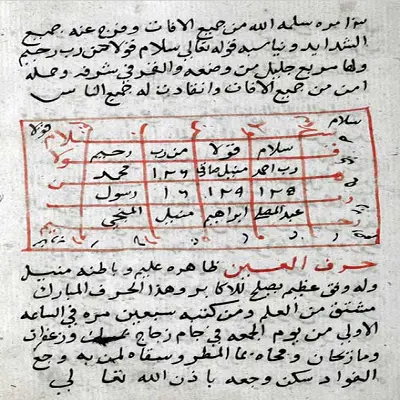 مره سلمه الله من جميع الافات وفرج عنه جميع
الشدايد ويناسبه قوله تعالي سلام قولا من رب رحيم
ولها سريع جليل من وضعه والقمر في شرفه وحمله
امن من جميع الافات وانقادت له جميع الناس
سلام قولا
سلام قولا من رب رحيم
رب احد ١٢٦ محمد
١٢٨ ١٢٩ ١٦ رسول
ابراهيم منيل
حرف العين ظاهره عليم وباطنه منيل
وله وفق عظيم يصلح للاكابر وهذا الحرف المبارك
مشتق من العلم ومن كتبه سبعين مره في الساعه
الاولي من يوم الجمعه في جام زجاج وزعفران
وماء ومحاه بماء المطر وسقاه لمن به وجع
الفواد سكن وجعه باذن الله تعالي